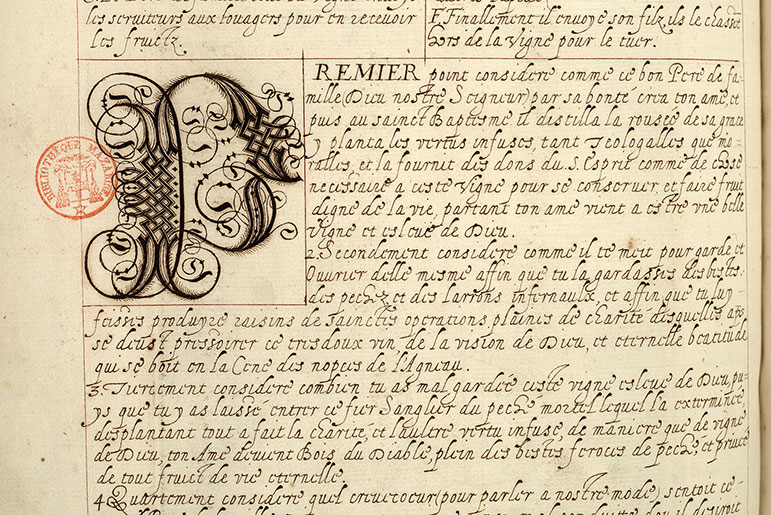 les seruiteurs aux louagers pour en receuoir
les fruictz.
F. Finallement il enuoye son filz, ils le chassent
hors de la Vigne pour le tuer.
PREMIER point considere comme ce bon Pere de fa-
mille (Dieu nostre Seigneur) par sa bonté crea ton ame, et
puis au sainct Baptisme il distilla la rousée de sa grace
y planta les vertus infuses, tant Teologalles que mo-
ralles, et la fournit des dons du S. Esprit comme de chose
necessaire a ceste Vigne pour se conseruer, et faire fruit
digne de la vie, partant ton ame vient a estre vne belle
Vigne et esleue de Dieu.
2. Secondement considere comme il te meit pour garde et
Ouurier d'elle mesme affin que tu la gardasses des bestes
des pechez et des larrons infernaulx, et affin que tu luy
feisses produyre raisins de sainctes operations, plaines de charité desquelles apres
se deust pressoirer ce tresdoux vin de la vision de Dieu, et eternelle beatitude
qui se boit en la Cene des nopces de l'Agneau.
3. Tiertement considere combien tu as mal gardée ceste vigne esleue de Dieu, pu-
ys que tu y as laissé entrer ce fier Sanglier du peché mortel lequel l'a exterminée,
desplantant tout a fait la charité, et l'aultre vertu infuse, de maniere que de vigne
de Dieu, ton Ame deuient Bois du Diable, plein des bestes feroces de peché, et priuée
de tout fruict de vie eternelle.
4. Quartement considere quel creuecoeur (pour parler a nostre mode) sentoit ce-
BIBLIOTHEQUE MAZARINE